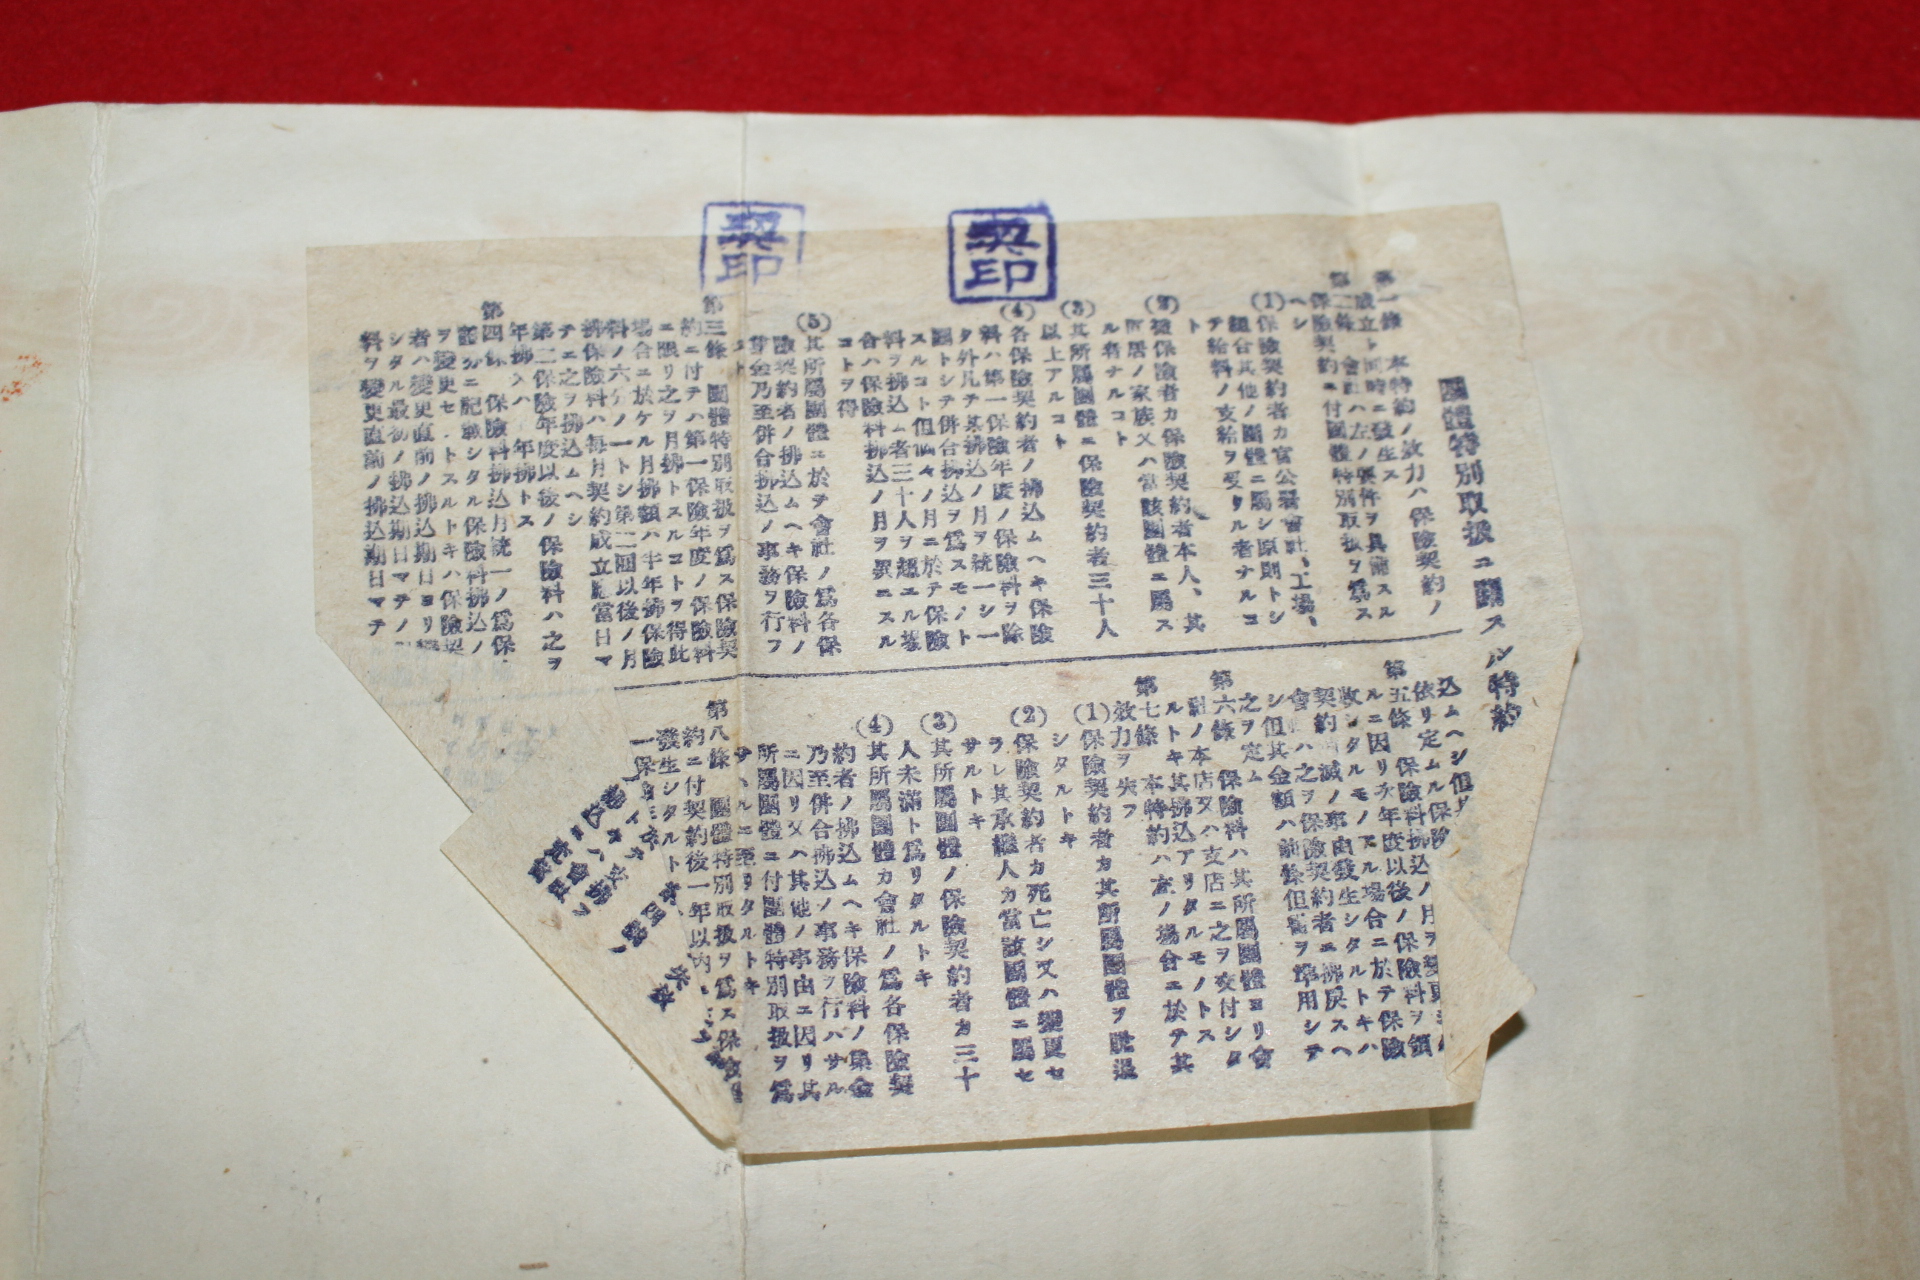 契印
契印
團體特別取扱ニ關スル特約
第一條 本特約ノ效力ハ保險契約ノ
成立ト同時ニ發生ス
第二條 會社ハ左ノ要件ヲ具備スル
保險契約ニ付團體特別取扱ヲ爲ス
ヘシ
(1)保險契約者カ官公署會社、工場、
組合其他ノ團體ニ屬シ原則トシ
テ給料ノ支給ヲ受クル者ナルコ
ト
(2)被保險者カ保險契約者本人、其
同居ノ家族又ハ當該團體ニ屬ス
ル者ナルコト
(3)其所屬團體ニ保險契約者三十人
以上アルコト
(4)各保險契約者ノ拂込ムヘキ保險
料ハ第一保險年度ノ保險料ヲ除
ク外凡テ其拂込ノ月ヲ統一シ一
團トシテ併合拂込ヲ爲スモノト
スルコト但仙々ノ月ニ於テ保險
料ヲ拂込ム者三十人ヲ超エル場
合ハ保險料拂込ノ月ヲ異ニスル
コトヲ得
(5)其所屬團體ニ於テ會社ノ爲各保
險契約者ノ拂込ムヘキ保險料ノ
集金乃至併合拂込ノ事務ヲ行フ
コト
第三條 團體特別取扱ヲ爲ス保險契
約ニ付テハ第一保險年度ノ保險料
ニ限リ之ヲ月拂トスルコトヲ得此
場合ニ於ケル月拂額ハ半年拂保險
料ノ六分ノ一トシ第二囘以後ノ月
拂保險料ハ每月契約成立應當日マ
テニ之ヲ拂込ムヘシ
第二保險年度以後ノ保險料ハ之ヲ
年拂又ハ半年拂トス
第四條 保險料拂込月統一ノ爲保
ヲ變更セントスルトキハ保險契
者ハ變更直前ノ拂込期日ヨリ
シタル最初ノ拂込期日マテノ
料ヲ變更直前ノ拂込期日マテ
込ムヘシ但其
依リ定ムル保險
第五條 保險料拂込ノ月ヲ變更シ
ルニ因リ次年度以後ノ保險料ヲ領
收シタルモノアル場合ニ於テ保險
契約消滅ノ事由發生シタルトキハ
會社ハ之ヲ保險契約者ニ拂戾スヘ
シ但其金額ハ前條但書ヲ準用シテ
之ヲ定ム
第六條 保險料ハ其所屬團體ヨリ會
社ノ本店又ハ支店ニ之ヲ交付シタ
ルトキ其拂込アリタルモノトス
第七條 本特約ハ左ノ場合ニ於テ其
效力ヲ失フ
(1)保險契約者カ其所屬團體ヲ脫退
シタルトキ
(2)保險契約者カ死亡シ又ハ變更セ
ラレ其承繼人カ當該團體ニ屬セ
サルトキ
(3)其所屬團體ノ保險契約者カ三十
人未滿ト爲リタルトキ
(4)其所屬團體カ會社ノ爲各保險契
約者ノ拂込ムヘキ保險料ノ集金
乃至併合拂込ノ事務ヲ行ハサル
ニ因リ又ハ其他ノ事由ニ因リ其
所屬團體ニ付團體特別取扱ヲ爲
サヽルニ至リタルトキ
第八條 團體特別取扱ヲ爲ス保險契
約ニ付契約後一年以內ニ
發生シタルトキ